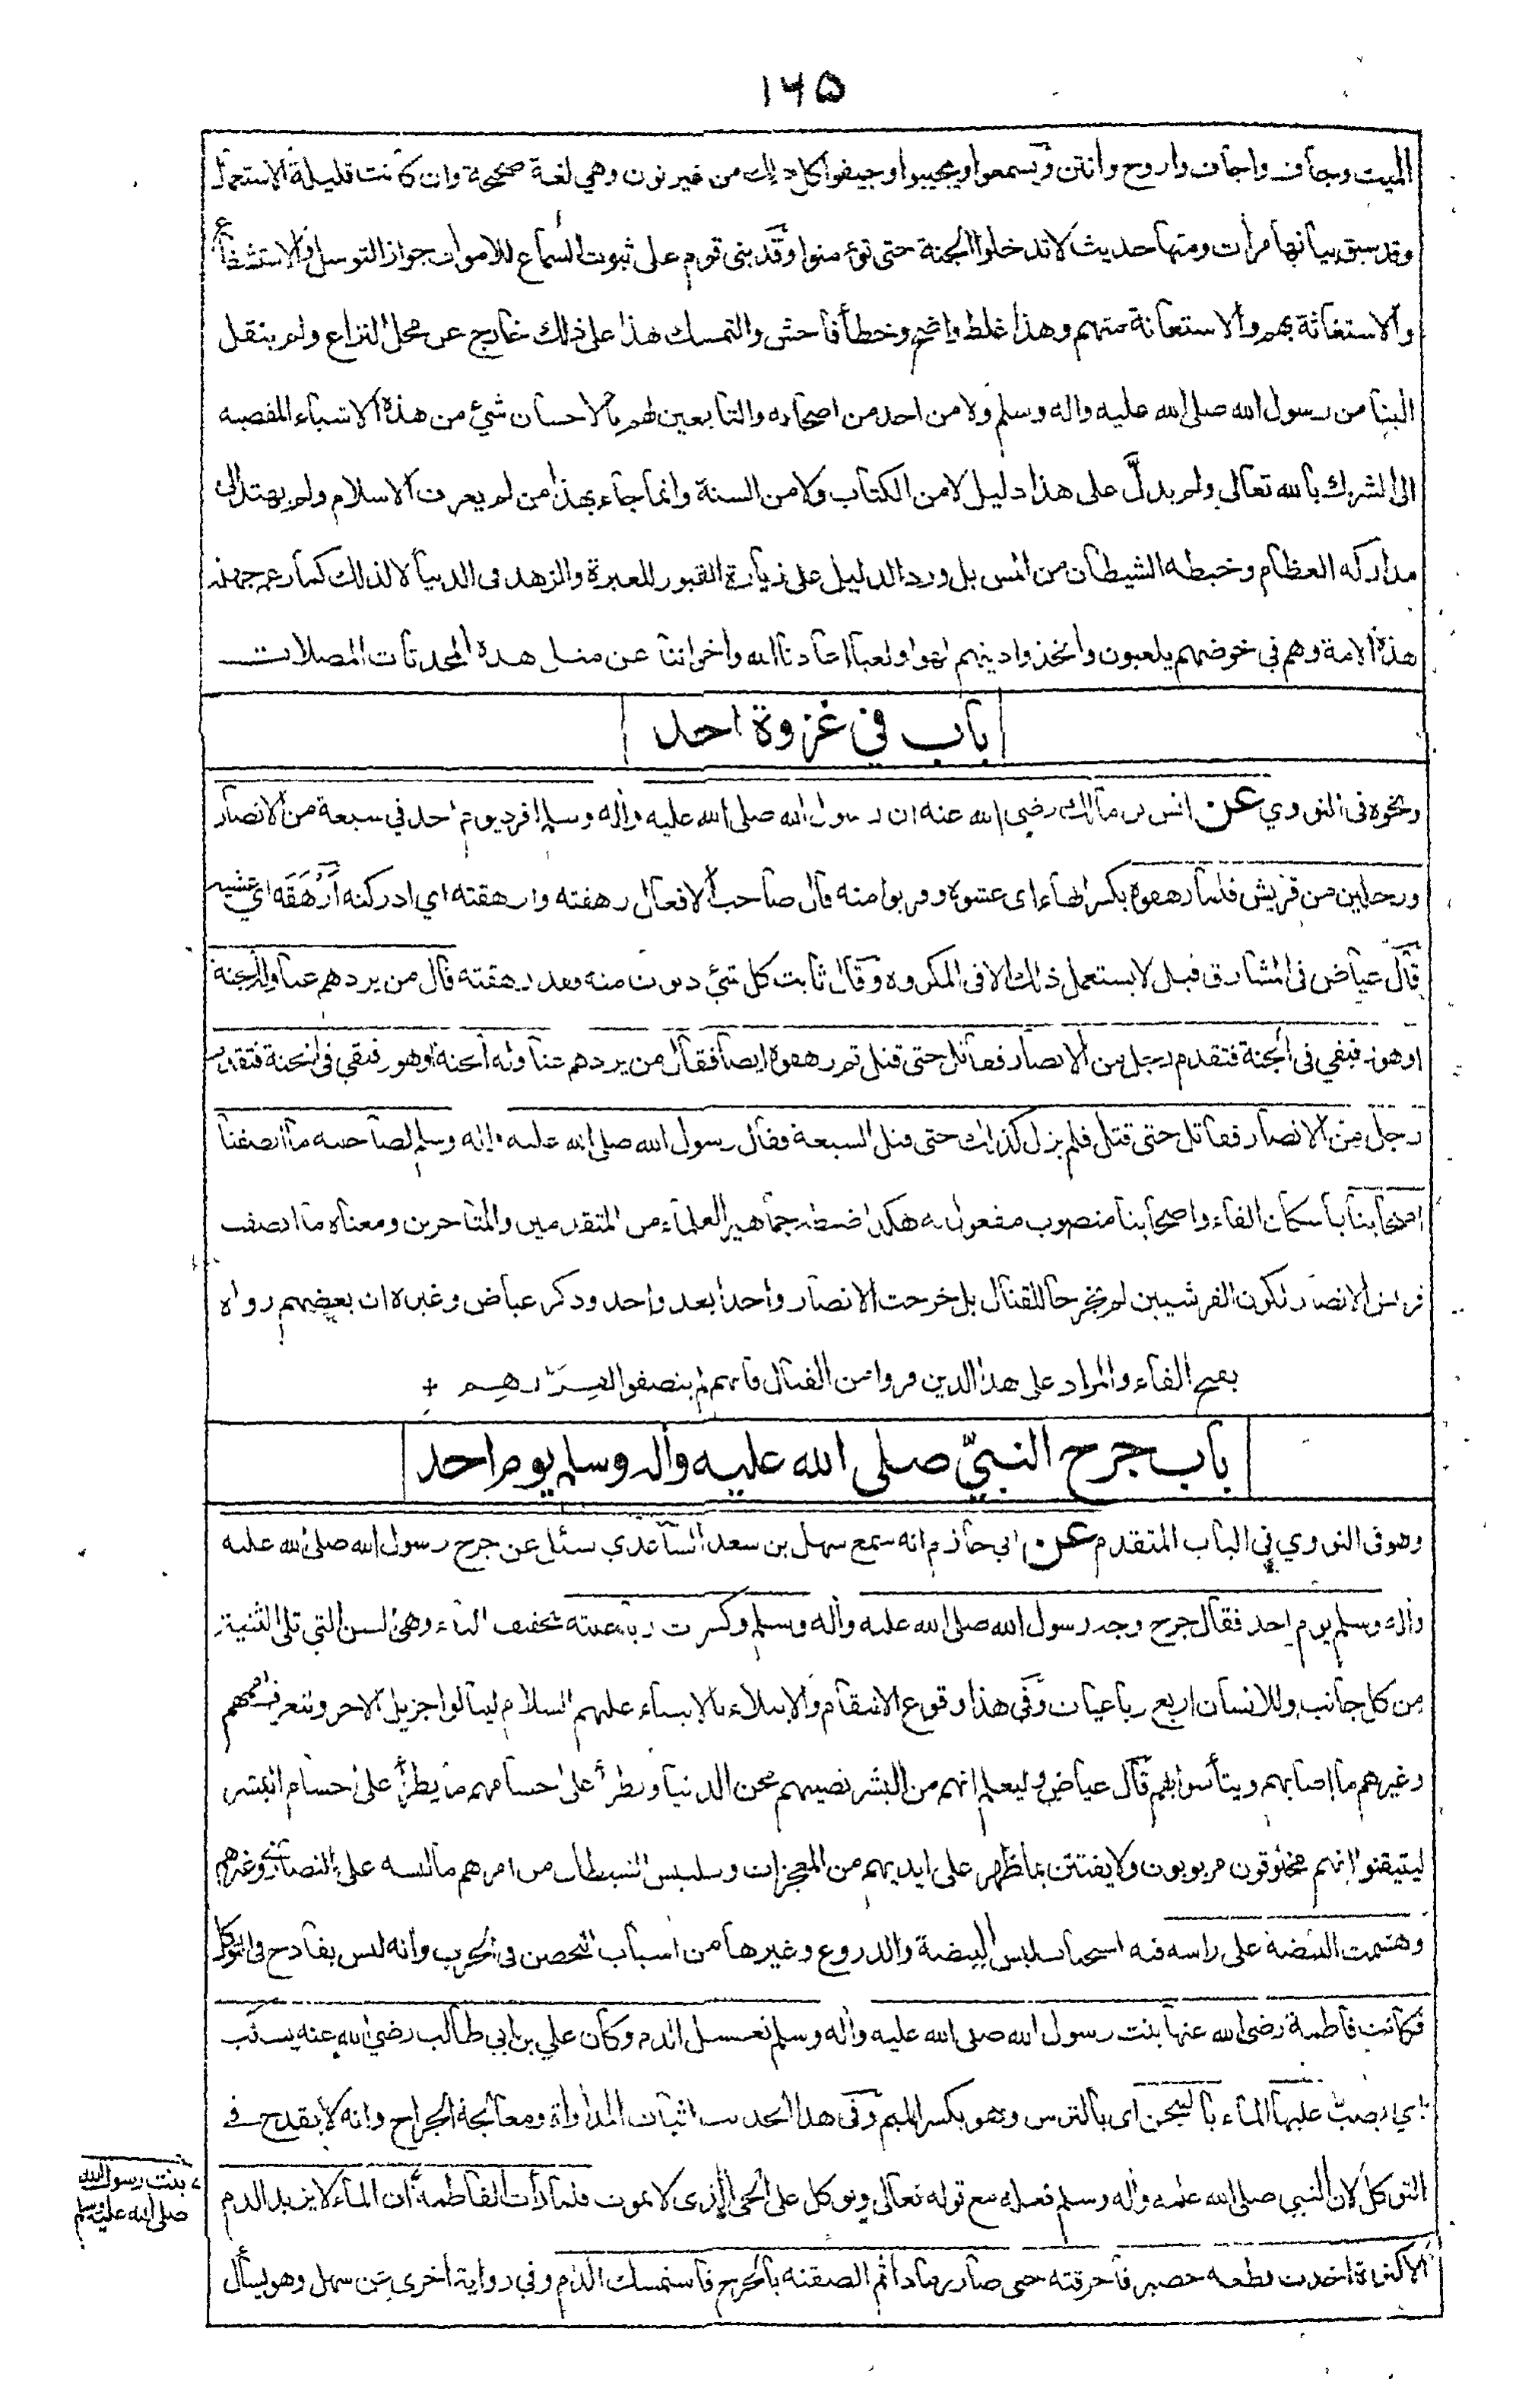 ١٦٥
الميت وجاف واجاف واروح وانتن ويسمعوا ويجيبوا وجيفوا كل ذلك من غير نون وهي لغة صحيحة وان كانت قليلة الاستعمال
وقد سبق بيانها مرات ومنها حديث لا تدخلوا الجنة حتى تؤمنوا وقد بنى قوم على ثبوت السماع للاموات جواز التوسل والاستشفاع
والاستغاثة بهم والاستعانة منهم وهذا غلط واضح وخطأ فاحش والتمسك هذا على ذلك خارج عن محل النزاع ولم ينقل
الينا من رسول الله صلى الله عليه واله وسلم ولا من احد من اصحابه والتابعين لهم بالاحسان شيء من هذه الاشياء المفضية
الى الشرك بالله تعالى ولم يدل على هذا دليل لا من الكتاب ولا من السنة وانما جاء بهذا من لم يعرف الاسلام ولم يهتد الى
مداركه العظام وخبطه الشيطان من المس بل ورد الدليل على زيارة القبور للعبرة والزهد في الدنيا لا لذلك كما زعم جهلة
هذه الامة وهم في خوضهم يلعبون واتخذوا دينهم لهوا ولعبا اعاذنا الله واخواننا عن مثل هذه المحدثات المضلات
باب في غزوة احد
ونحوه في النووي عن انس بن مالك رضي الله عنه ان رسول الله صلى الله عليه واله وسلم افرد يوم احد في سبعة من الانصار
ورجلين من قريش فلما رهقوه بكسر الهاء اى غشوه وقربوا منه قال صاحب الافعال رهقته وارهقته اي ادركته ارهقه اي غشيه
قال عياض في المشارق قيل لا يستعمل ذلك الا في المكروه وقال ثابت كل شيء دنوت منه فقد رهقته قال من يردهم عنا وله الجنة
او هو رفيقي في الجنة فتقدم رجل من الانصار فقاتل حتى قتل ثم رهقوه ايضا فقال من يردهم عنا وله الجنة او هو رفيقي في الجنة فتقدم
رجل من الانصار فقاتل حتى قتل فلم يزل كذلك حتى قتل السبعة فقال رسول الله صلى الله عليه واله وسلم لصاحبيه ما انصفنا
اصحابنا باسكان الفاء واصحابنا منصوب مفعول به هكذا ضبطه جماهير العلماء من المتقدمين والمتاخرين ومعناه ما انصفت
قريش الانصار لكون القرشيين لم يخرجا للقتال بل خرجت الانصار واحدا بعد واحد وذكر عياض وغيره ان بعضهم رواه
بفتح الفاء والمراد على هذا الذين فروا من القتال فانهم لم ينصفوا لفرارهم +
باب جرح النبيّ صلى الله عليه واله وسلم يوم احد
وهو في النووي في الباب المتقدم عن ابي حازم انه سمع سهل بن سعد الساعدي سئل عن جرح رسول الله صلى الله عليه
واله وسلم يوم احد فقال جرح وجه رسول الله صلى الله عليه واله وسلم وكسرت رباعيته بتخفيف الياء وهي السن التي تلى الثنية
من كل جانب وللانسان اربع رباعيات وفي هذا وقوع الانتقام والابتلاء بالانبياء عليهم السلام لينالوا جزيل الاجر ولتعرف اممهم
وغيرهم ما اصابهم ويتأسوا بهم قال عياض وليعلم انهم من البشر تصيبهم محن الدنيا ويطرأ على اجسامهم ما يطرأ على اجسام البشر
ليتيقنوا انهم مخلوقون مربوبون ولا يفتتن بما ظهر على ايديهم من المعجزات وتلبيس الشيطان من امرهم ما لبسه على النصارى وغيرهم
وهشمت البيضة على راسه فيه استحباب لبس البيضة والدروع وغيرها من اسباب التحصن في الحرب وانه ليس بقادح في التوكل
فكانت فاطمة رضي الله عنها بنت رسول الله صلى الله عليه واله وسلم تغسل الدم وكان علي بن ابي طالب رضي الله عنه يسكب
اي يصب عليها الماء بالمجن اى بالترس وهو بكسر الميم وفي هذا الحديث اثبات المداواة ومعالجة الجراح وانه لا يقدح في
التوكل لان النبي صلى الله عليه واله وسلم فعله مع قوله تعالى وتوكل على الحي الذي لا يموت فلما رأت الفاطمة ان الماء لا يزيد الدم
الا كثرة اخذت قطعة حصير فاحرقته حتى صار رمادا ثم الصقته بالجرح فاستمسك الدم وفي رواية اخرى عن سهل وهو يسأل
بنت رسول الله
صلى الله عليه وسلم